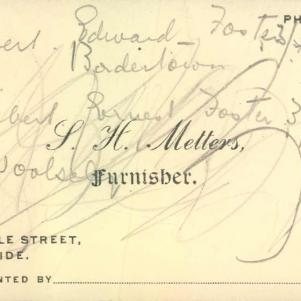 PH
ert. Edward Foster
Bordertown
bert Forrest Foster 3
S. H. Metters,
Furnisher.
LE STREET,
IDE.
NTED BY